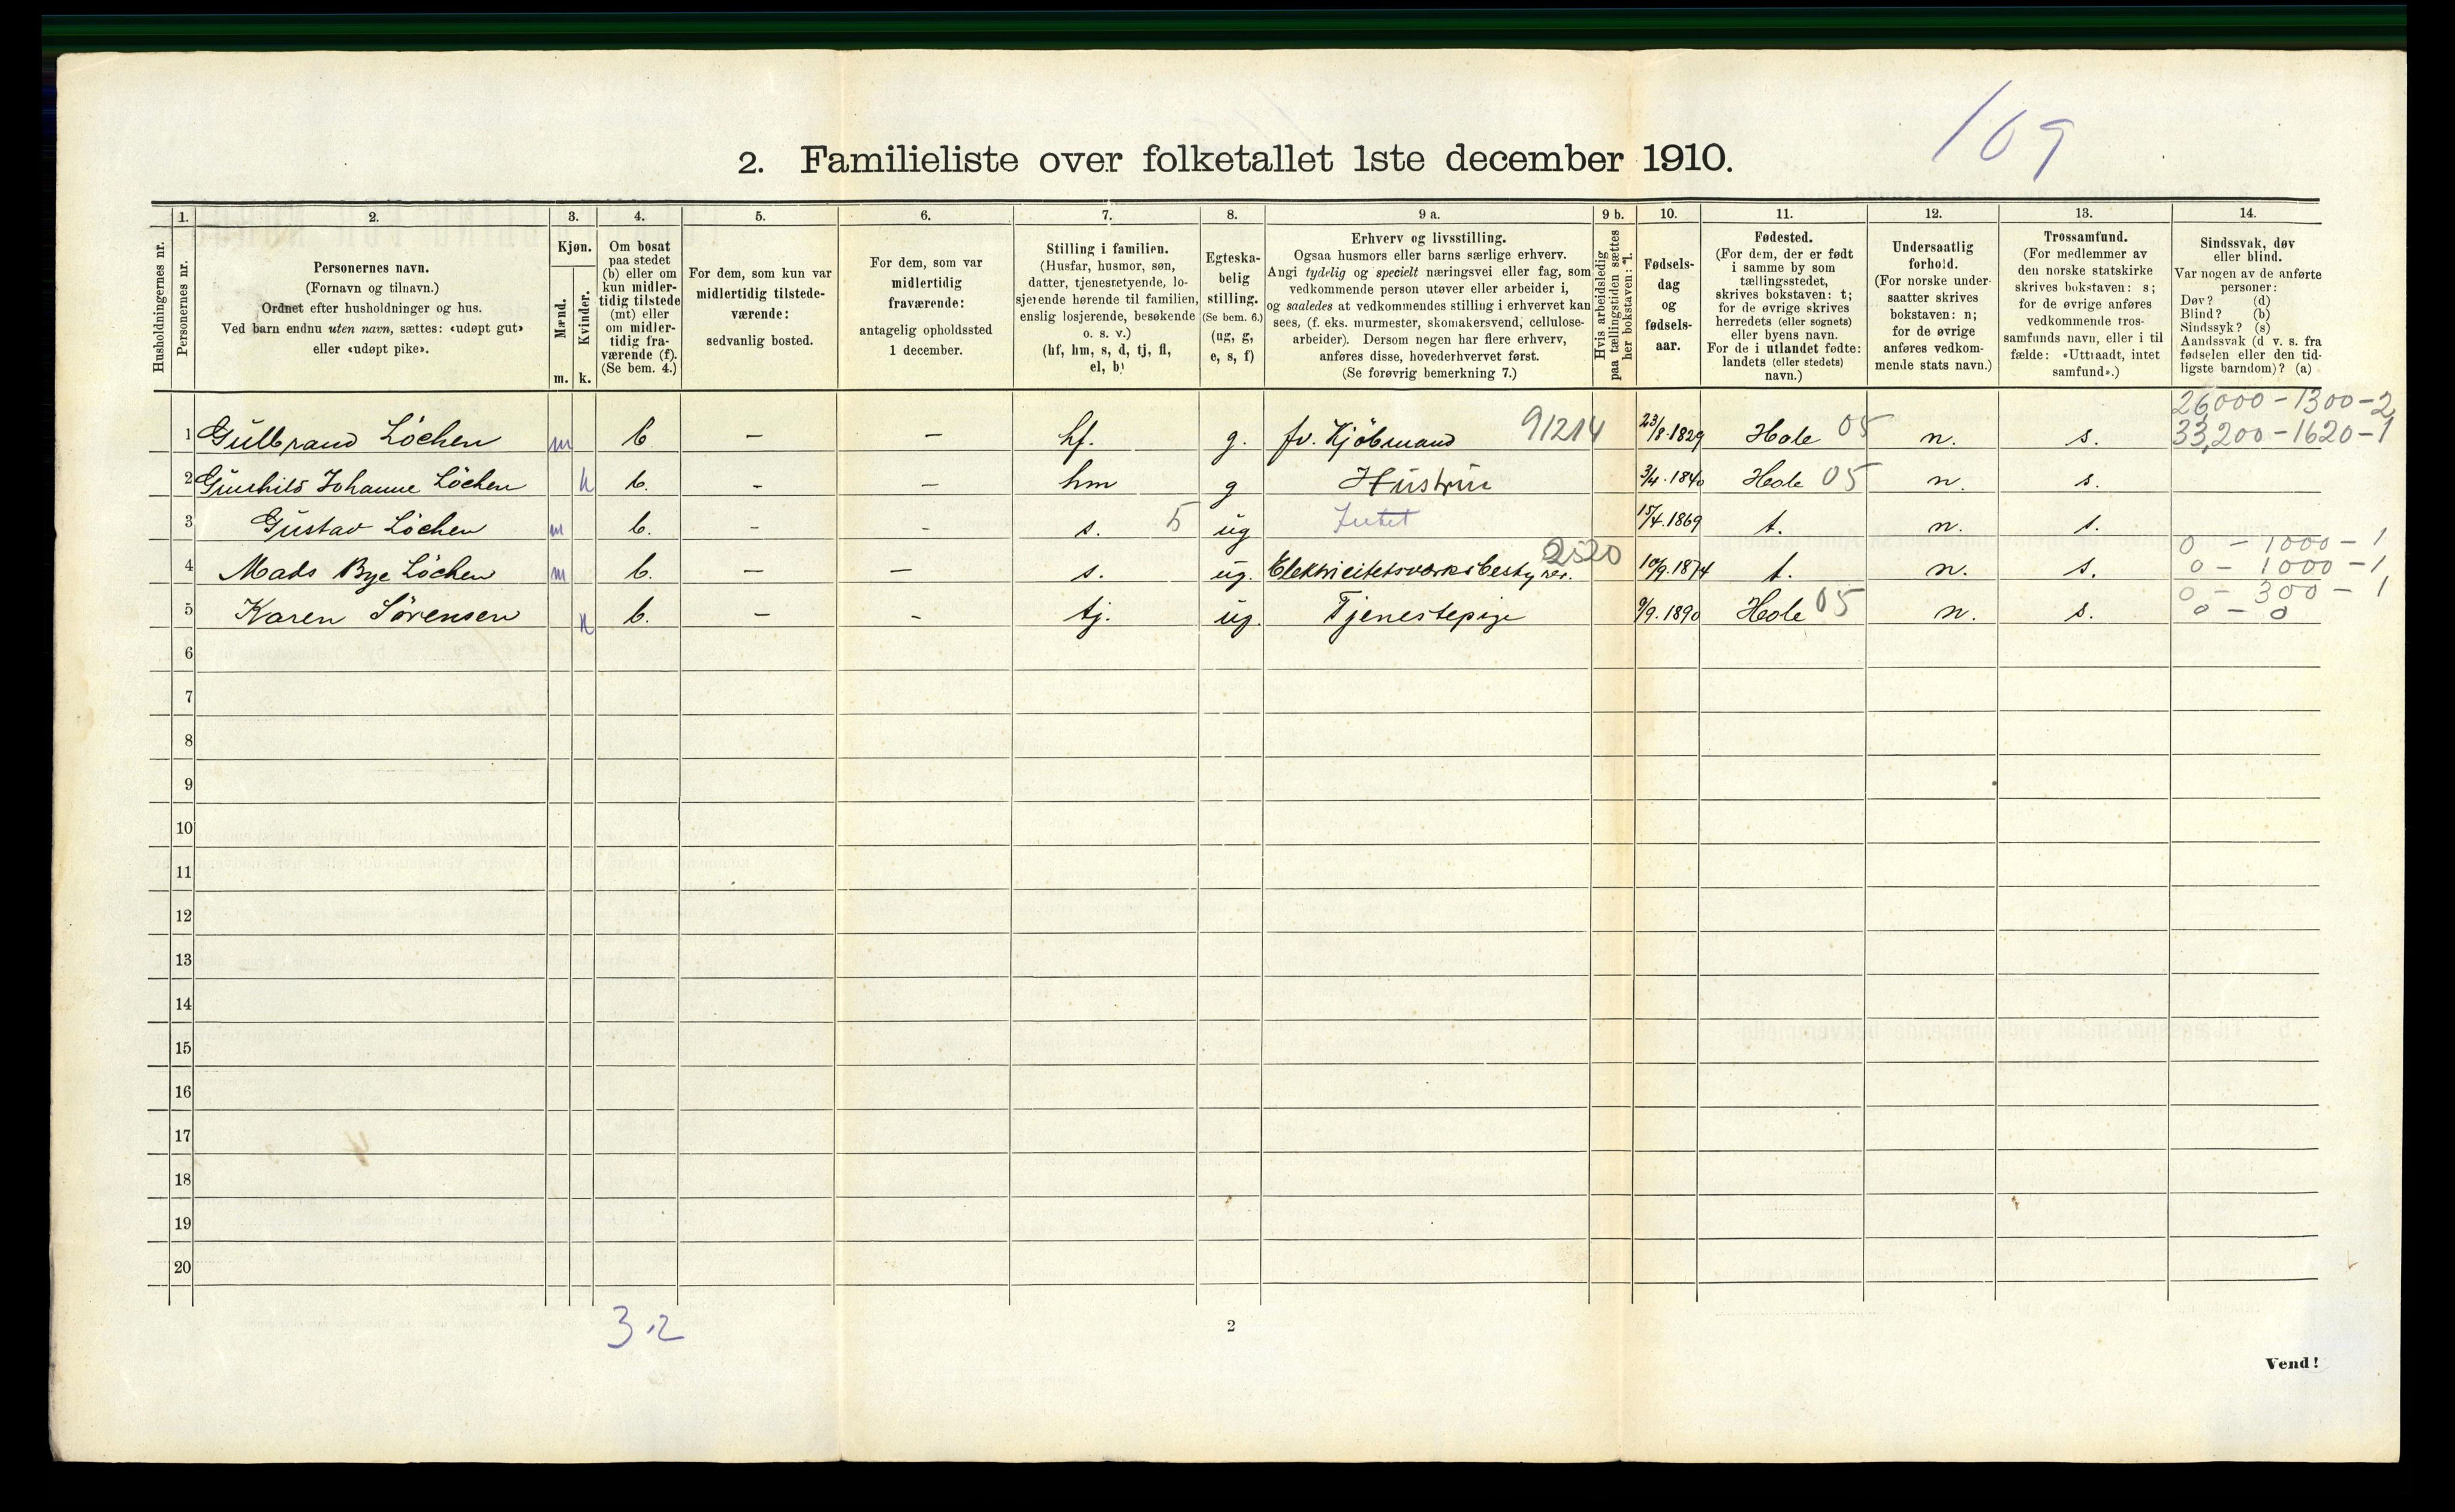 109
2. Familieliste over folketallet 1ste december 1910.
Husholdningernes nr.
1.
Personernes nr.
2.
Personernes navn.
(Fornavn og tilnavn.)
Ordnet efter husholdninger og hus.
Ved barn endnu uten navn, sættes: «udøpt gut»
eller «udøpt pike».
3.
Kjøn.
Mænd.
Kvinder.
m. k.
4.
Om bosat
paa stedet
(b) eller om
kun midler-
tidig tilstede
(mt) eller
om midler-
tidig fra-
værende (f).
(Se bem. 4.)
5.
For dem, som kun var
midlertidig tilstede-
værende:
sedvanlig bosted.
6.
For dem, som var
midlertidig
fraværende:
antagelig opholdssted
1 december.
7.
Stilling i familien.
(Husfar, husmor, søn,
datter, tjenestetyende, lo-
sjerende hørende til familien,
enslig losjerende, besøkende
o. s. v.)
(hf, hm, s, d, tj, fl,
el, b)
8.
Egteska-
belig
stilling.
(Se bem. 6.)
(ug, g,
e, s, f)
9 a.
Erhverv og livsstilling.
Ogsaa husmors eller barns særlige erhverv.
Angi tydelig og specielt næringsvei eller fag, som
vedkommende person utøver eller arbeider i,
og saaledes at vedkommendes stilling i erhvervet kan
sees, (f. eks. murmester, skomakersvend, cellulose-
arbeider). Dersom nogen har flere erhverv,
anføres disse, hovederhvervet først.
(Se forøvrig bemerkning 7.)
9 b.
Hvis arbeidsledig
paa tællingstiden sættes
her bokstaven: l.
10.
Fødsels-
dag
og
fødsels-
aar.
11.
Fødested.
(For dem, der er født
i samme by som
tællingsstedet,
skrives bokstaven: t;
for de øvrige skrives
herredets (eller sognets)
eller byens navn.
For de i utlandet fødte:
landets (eller stedets)
navn.)
12.
Undersaatlig
forhold.
(For norske under-
saatter skrives
bokstaven: n;
for de øvrige
anføres vedkom-
mende stats navn.)
13.
Trossamfund.
(For medlemmer av
den norske statskirke
skrives bokstaven: s;
for de øvrige anføres
vedkommende tros-
samfunds navn, eller i til
fælde: «Uttraadt, intet
samfund».)
14.
Sindssvak, døv
eller blind.
Var nogen av de anførte
personer:
Døv? (d)
Blind? (b)
Sindssyk? (s)
Aandssvak (d v. s. fra
fødselen eller den tid-
ligste barndom)? (a)
26000 - 1300 - 2
1 Gulbrand Löchen m b - - hf. g. fv. Kjöbmand 91214 23/8.1829 Hole 05 n. s. 33,200 - 1620 - 1
2 Gunhild Johanne Löchen k b. - - hm g Hustru 3/4.1840 Hole 05 n. s.
3 Gustav Löchen m b. - - s. 5 ug Intet 15/4.1869 t. n. s.
0 - 1000 - 1
4 Mads Bye Löchen m b. - - s. ug. Elektricitetsværksbestyrer. 2520 10/9.1874 t. n. s. 0 - 1000 - 1
0 - 300 - 1
5 Karen Sörensen k b. - - tj. ug. Tjenestepige 9/9.1890 Hole 05 n. s. 0 - 0
6
7
8
9
10
11
12
13
14
15
16
17
18
19
20
3.2
2
Vend!